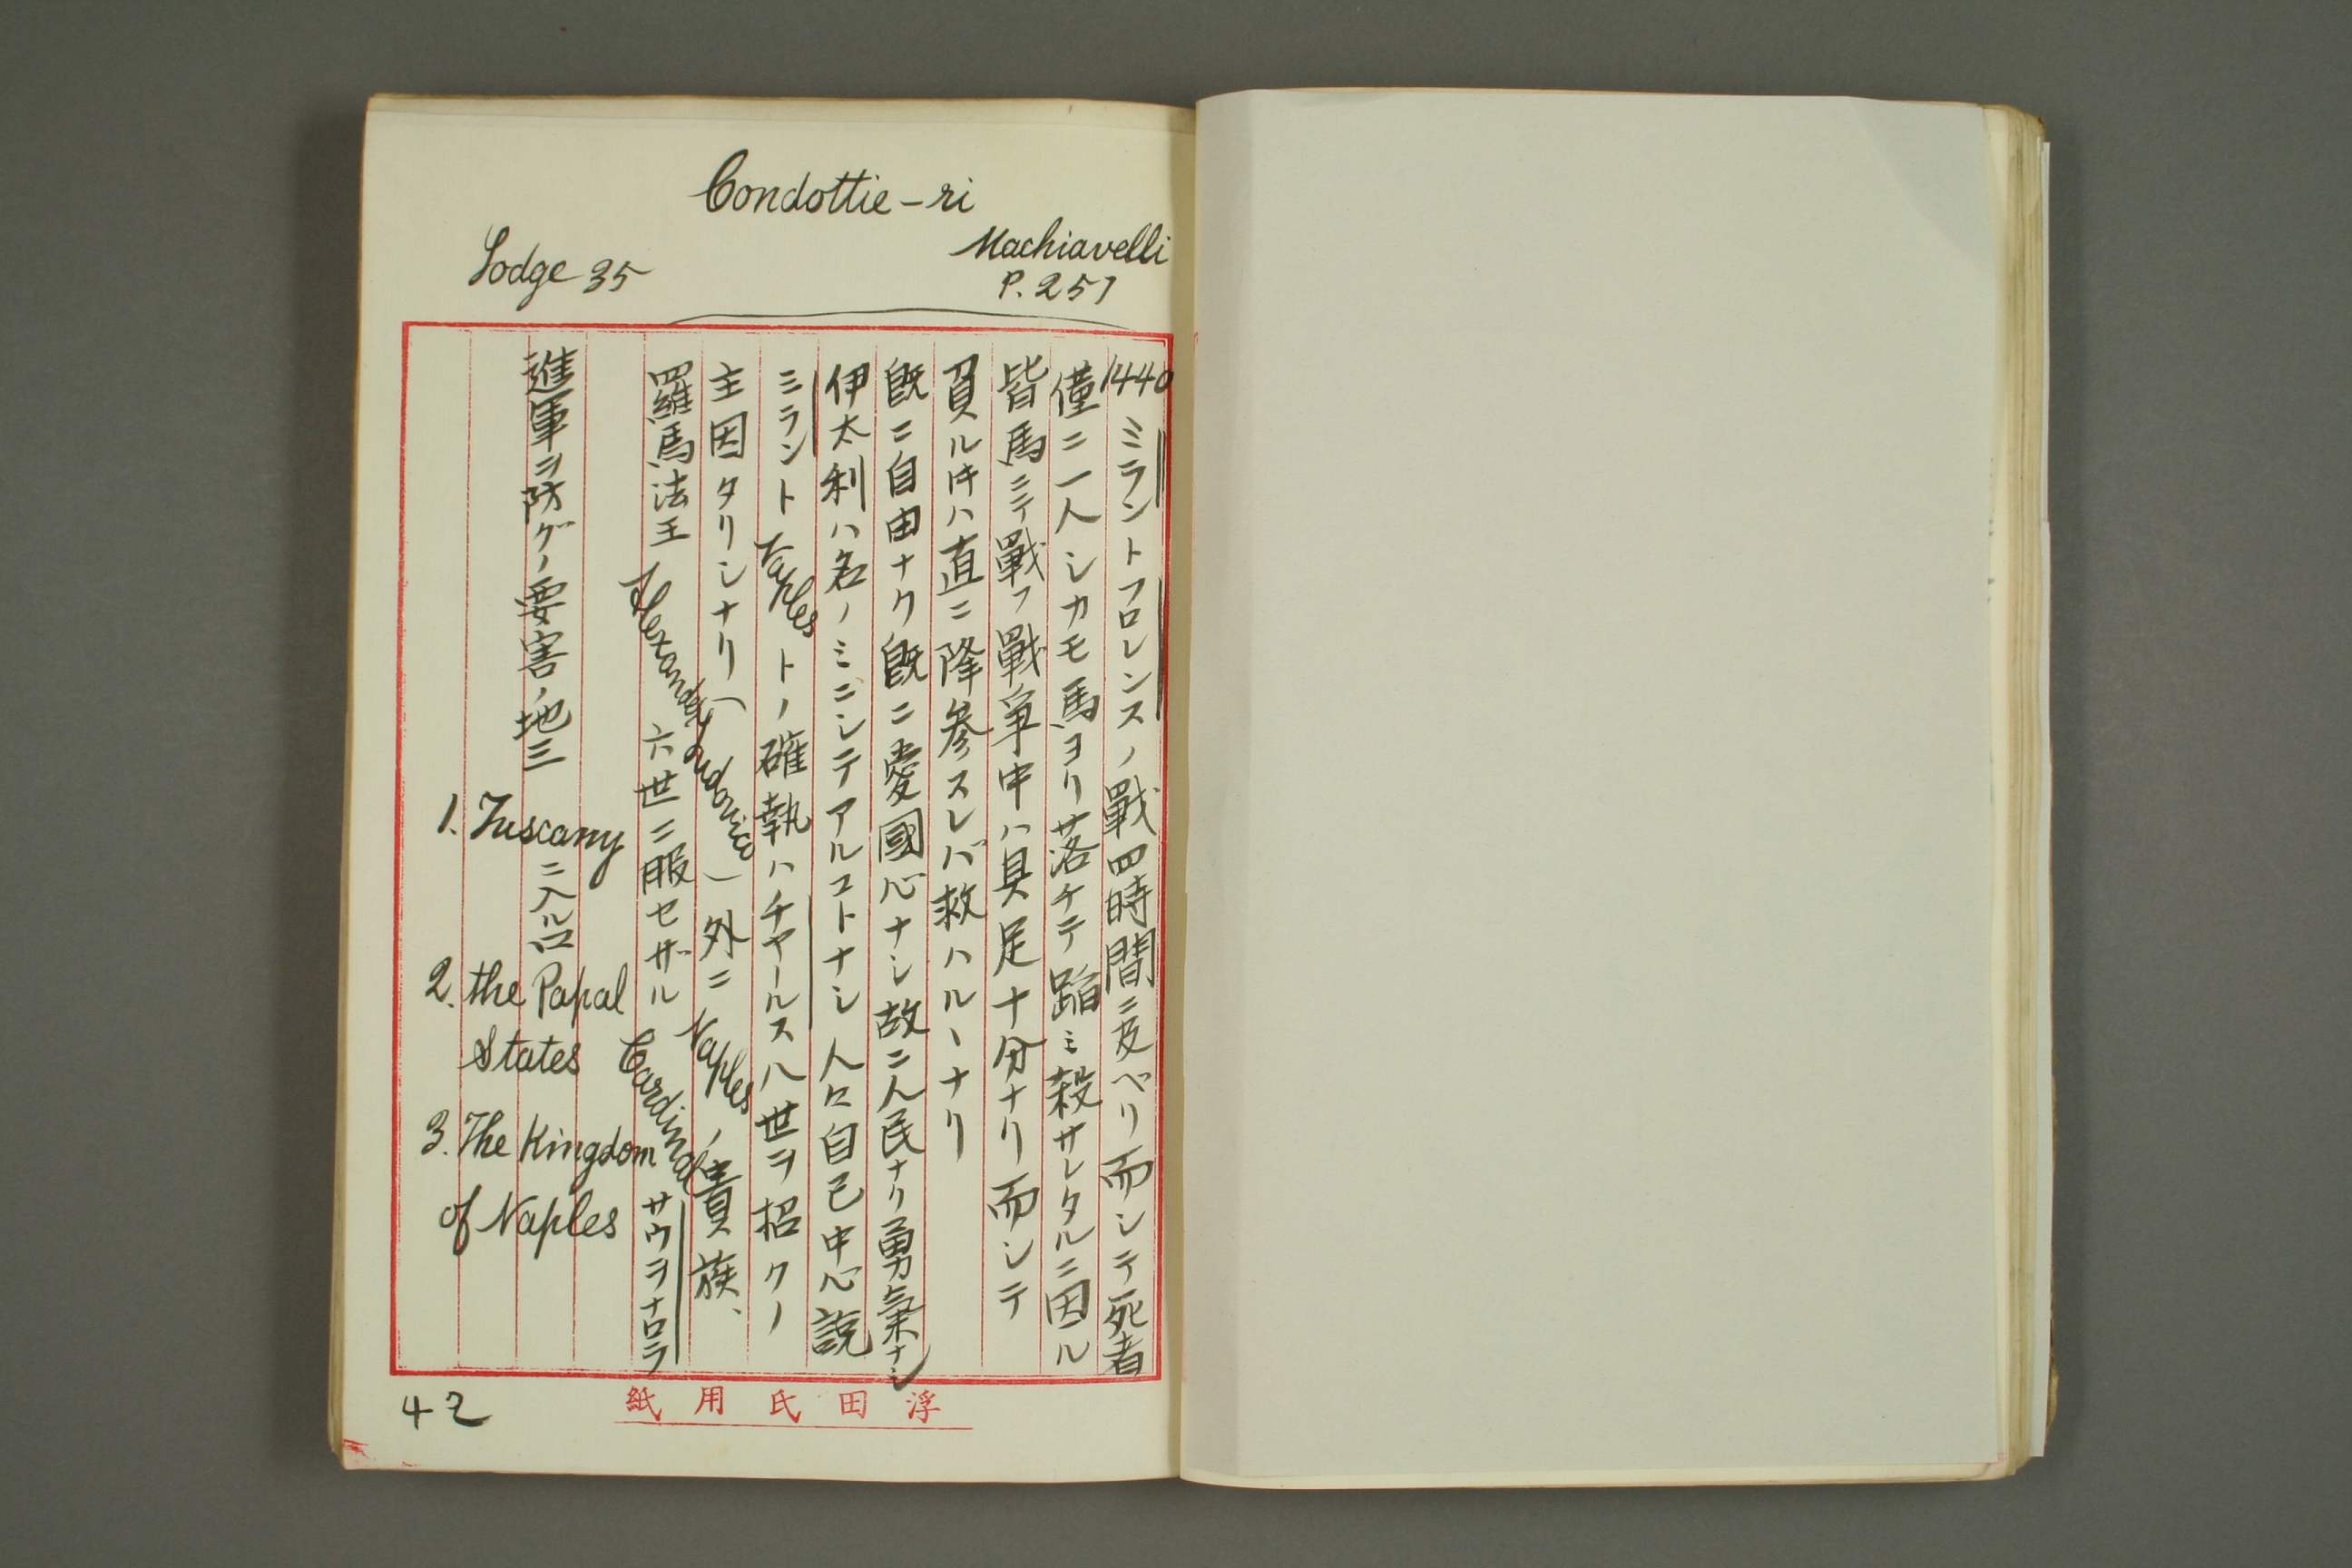 Condottie-ri
Machiavelli
P. 257
Lodge 35
1440 ミラントフロレンスノ戰四時間ニ及ベリ而シテ死者
僅ニ一人シカモ馬ヨリ落チテ蹈ミ殺サレタルニ因ル
皆馬ニテ戰フ戰爭中ハ具足十分ナリ而シテ
負ルㇳキハ直ニ降參スレバ救ハルヽナリ
既ニ自由ナク既ニ愛國心ナシ故ニ人民ナク勇氣ナシ
伊太利ハ名ノミニシテアルコトナシ 人口自己中心說
ミラント Naples トノ確執ハチヤールス八世ヲ招クノ
主因タリシナリ(Ludovico)外ニ Naples ノ貴族、
羅馬法王 Alexander 六世ニ服セザル Cardinal サウラナロラ
進軍ヲ防グノ要害ノ地三
1. Tuscany ニ入ル口
2. the Papal
States
3. The Kingdom
of Naples
浮田氏用紙
42